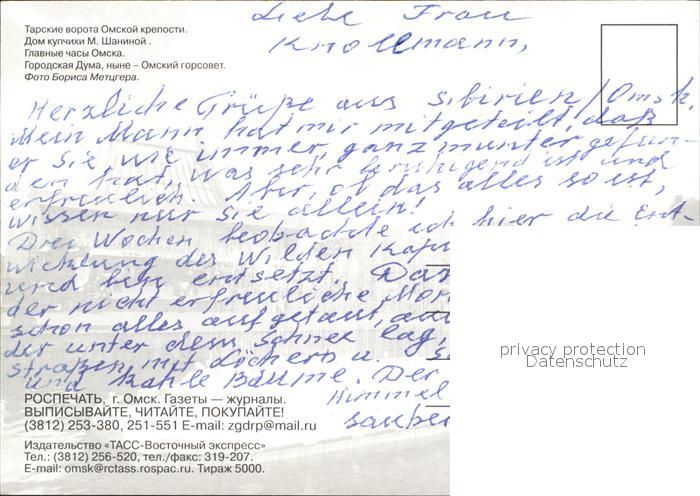 Тарские ворота Омской крепости.
Дом купчихи М. Шаниной .
Главные часы Омска.
Городская Дума, ныне – Омский горсовет.
Фото Бориса Метцгера.
Liebe Frau
Knollmann,
Herzliche Grüße aus Sibirien/Omsk
Mein Mann hat mir mitgeteilt, daß
er Sie wie immer, ganz munter gefun-
den hat, was sehr beruhigend ist und
erfreulich. Aber, ob das alles so ist,
wissen nur Sie allein!
Drei Wochen beobachte ich hier die Ent-
wicklung des Wilden Kapi
und bin entsetzt. Daz
der nicht erfreuliche Mon
schon alles aufgetaut, au
der unter dem Schnee lag,
straßen mit Löchern u. s
und kahle Bäume. Der
Himmel
sauber
РОСПЕЧАТЬ, г. Омск. Газеты — журналы.
ВЫПИСЫВАЙТЕ, ЧИТАЙТЕ, ПОКУПАЙТЕ!
(3812) 253-380, 251-551 E-mail: zgdrp@mail.ru
Издательство «ТАСС-Восточный экспресс»
Тел.: (3812) 256-520, тел./факс: 319-207.
E-mail: omsk@rctass.rospac.ru. Тираж 5000.
privacy protection
Datenschutz